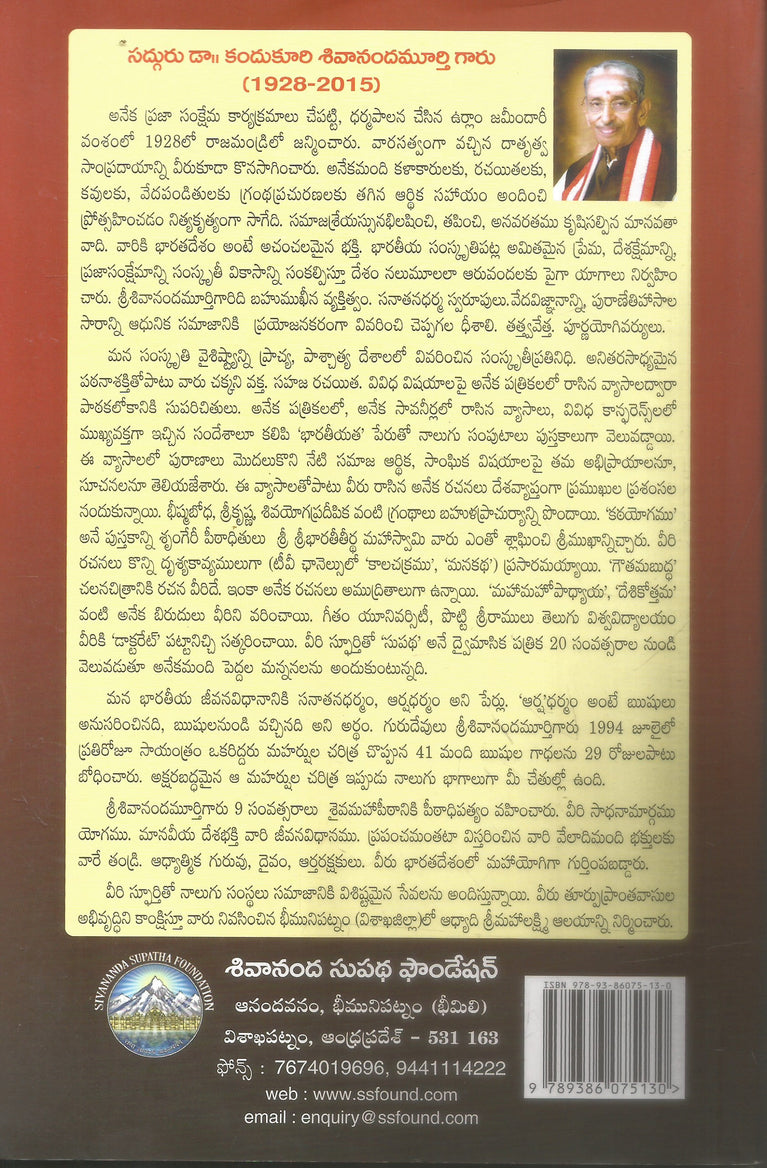 సద్గురు డా॥ కందుకూరి శివానందమూర్తి గారు
(1928-2015)
అనేక ప్రజా సంక్షేమ కార్యక్రమాలు చేపట్టి, ధర్మపాలన చేసిన ఉర్లాం జమీందారీ
వంశంలో 1928లో రాజమండ్రిలో జన్మించారు. వారసత్వంగా వచ్చిన దాతృత్వ
సాంప్రదాయాన్ని వీరుకూడా కొనసాగించారు. అనేకమంది కళాకారులకు, రచయితలకు,
కవులకు, వేదపండితులకు గ్రంథప్రచురణలకు తగిన ఆర్థిక సహాయం అందించి
ప్రోత్సహించడం నిత్యకృత్యంగా సాగేది. సమాజశ్రేయస్సునభిలషించి, తపించి, అనవరతము కృషిసల్పిన మానవతా
వాది. వారికి భారతదేశం అంటే అచంచలమైన భక్తి. భారతీయ సంస్కృతిపట్ల అమితమైన ప్రేమ, దేశక్షేమాన్ని,
ప్రజాసంక్షేమాన్ని సంస్కృతీ వికాసాన్ని సంకల్పిస్తూ దేశం నలుమూలలా ఆరువందలకు పైగా యాగాలు నిర్వహిం
చారు. శ్రీశివానందమూర్తిగారిది బహుముఖీన వ్యక్తిత్వం. సనాతనధర్మ స్వరూపులు.వేదవిజ్ఞానాన్ని, పురాణేతిహాసాల
సారాన్ని ఆధునిక సమాజానికి ప్రయోజనకరంగా వివరించి చెప్పగల ధీశాలి. తత్త్వవేత్త. పూర్ణయోగివర్యులు.
మన సంస్కృతి వైశిష్ట్యాన్ని ప్రాచ్య, పాశ్చాత్య దేశాలలో వివరించిన సంస్కృతీప్రతినిధి. అనితరసాధ్యమైన
పఠనాశక్తితోపాటు వారు చక్కని వక్త. సహజ రచయిత. వివిధ విషయాలపై అనేక పత్రికలలో రాసిన వ్యాసాలద్వారా
పాఠకలోకానికి సుపరిచితులు. అనేక పత్రికలలో, అనేక సావనీర్లలో రాసిన వ్యాసాలు, వివిధ కాన్ఫరెన్స్‌లలో
ముఖ్యవక్తగా ఇచ్చిన సందేశాలూ కలిపి 'భారతీయత' పేరుతో నాలుగు సంపుటాలు పుస్తకాలుగా వెలువడ్డాయి.
ఈ వ్యాసాలలో పురాణాలు మొదలుకొని నేటి సమాజ ఆర్థిక, సాంఘిక విషయాలపై తమ అభిప్రాయాలనూ,
సూచనలనూ తెలియజేశారు. ఈ వ్యాసాలతోపాటు వీరు రాసిన అనేక రచనలు దేశవ్యాప్తంగా ప్రముఖుల ప్రశంసల
నందుకున్నాయి. భీష్మబోధ, శ్రీకృష్ణ, శివయోగప్రదీపిక వంటి గ్రంథాలు బహుళప్రాచుర్యాన్ని పొందాయి. 'కఠయోగము'
అనే పుస్తకాన్ని శృంగేరీ పీఠాధిపతులు శ్రీ శ్రీభారతీతీర్థ మహాస్వామి వారు ఎంతో శ్లాఘించి శ్రీముఖాన్నిచ్చారు. వీరి
రచనలు కొన్ని దృశ్యకావ్యములుగా (టీవీ ఛానెల్సులో 'కాలచక్రము', 'మనకథ') ప్రసారమయ్యాయి. 'గౌతమబుద్ధ'
చలనచిత్రానికి రచన వీరిదే. ఇంకా అనేక రచనలు అముద్రితాలుగా ఉన్నాయి. 'మహామహోపాధ్యాయ', 'దేశికోత్తమ'
వంటి అనేక బిరుదులు వీరిని వరించాయి. గీతం యూనివర్సిటీ, పొట్టి శ్రీరాములు తెలుగు విశ్వవిద్యాలయం
వీరికి 'డాక్టరేట్' పట్టానిచ్చి సత్కరించాయి. వీరి స్ఫూర్తితో 'సుపథ' అనే ద్వైమాసిక పత్రిక 20 సంవత్సరాల నుండి
వెలువడుతూ అనేకమంది పెద్దల మన్ననలను అందుకుంటున్నది.
మన భారతీయ జీవనవిధానానికి సనాతనధర్మం, ఆర్షధర్మం అని పేర్లు. 'ఆర్ష'ధర్మం అంటే ఋషులు
అనుసరించినది, ఋషులనుండి వచ్చినది అని అర్థం. గురుదేవులు శ్రీశివానందమూర్తిగారు 1994 జూలైలో
ప్రతిరోజూ సాయంత్రం ఒకరిద్దరు మహర్షుల చరిత్ర చొప్పున 41 మంది ఋషుల గాధలను 29 రోజులపాటు
బోధించారు. అక్షరబద్ధమైన ఆ మహర్షుల చరిత్ర ఇప్పుడు నాలుగు భాగాలుగా మీ చేతుల్లో ఉంది.
శ్రీశివానందమూర్తిగారు 9 సంవత్సరాలు శైవమహాపీఠానికి పీఠాధిపత్యం వహించారు. వీరి సాధనామార్గము
యోగము. మానవీయ దేశభక్తి వారి జీవనవిధానము. ప్రపంచమంతటా విస్తరించిన వారి వేలాదిమంది భక్తులకు
వారే తండ్రి. ఆధ్యాత్మిక గురువు, దైవం, ఆర్తరక్షకులు. వీరు భారతదేశంలో మహాయోగిగా గుర్తింపబడ్డారు.
వీరి స్ఫూర్తితో నాలుగు సంస్థలు సమాజానికి విశిష్టమైన సేవలను అందిస్తున్నాయి. వీరు తూర్పుప్రాంతవాసుల
అభివృద్ధిని కాంక్షిస్తూ వారు నివసించిన భీమునిపట్నం (విశాఖజిల్లా)లో ఆధ్యాది శ్రీమహాలక్ష్మి ఆలయాన్ని నిర్మించారు.
SIVANANDA SUPATHA FOUNDATION
శివానంద సుపథ ఫౌండేషన్
ఆనందవనం, భీమునిపట్నం (భీమిలి)
విశాఖపట్నం, ఆంధ్రప్రదేశ్ - 531 163
ఫోన్స్ : 7674019696, 9441114222
web : www.ssfound.com
email : enquiry@ssfound.com
ISBN 978-93-86075-13-0
9 789386 075130 >